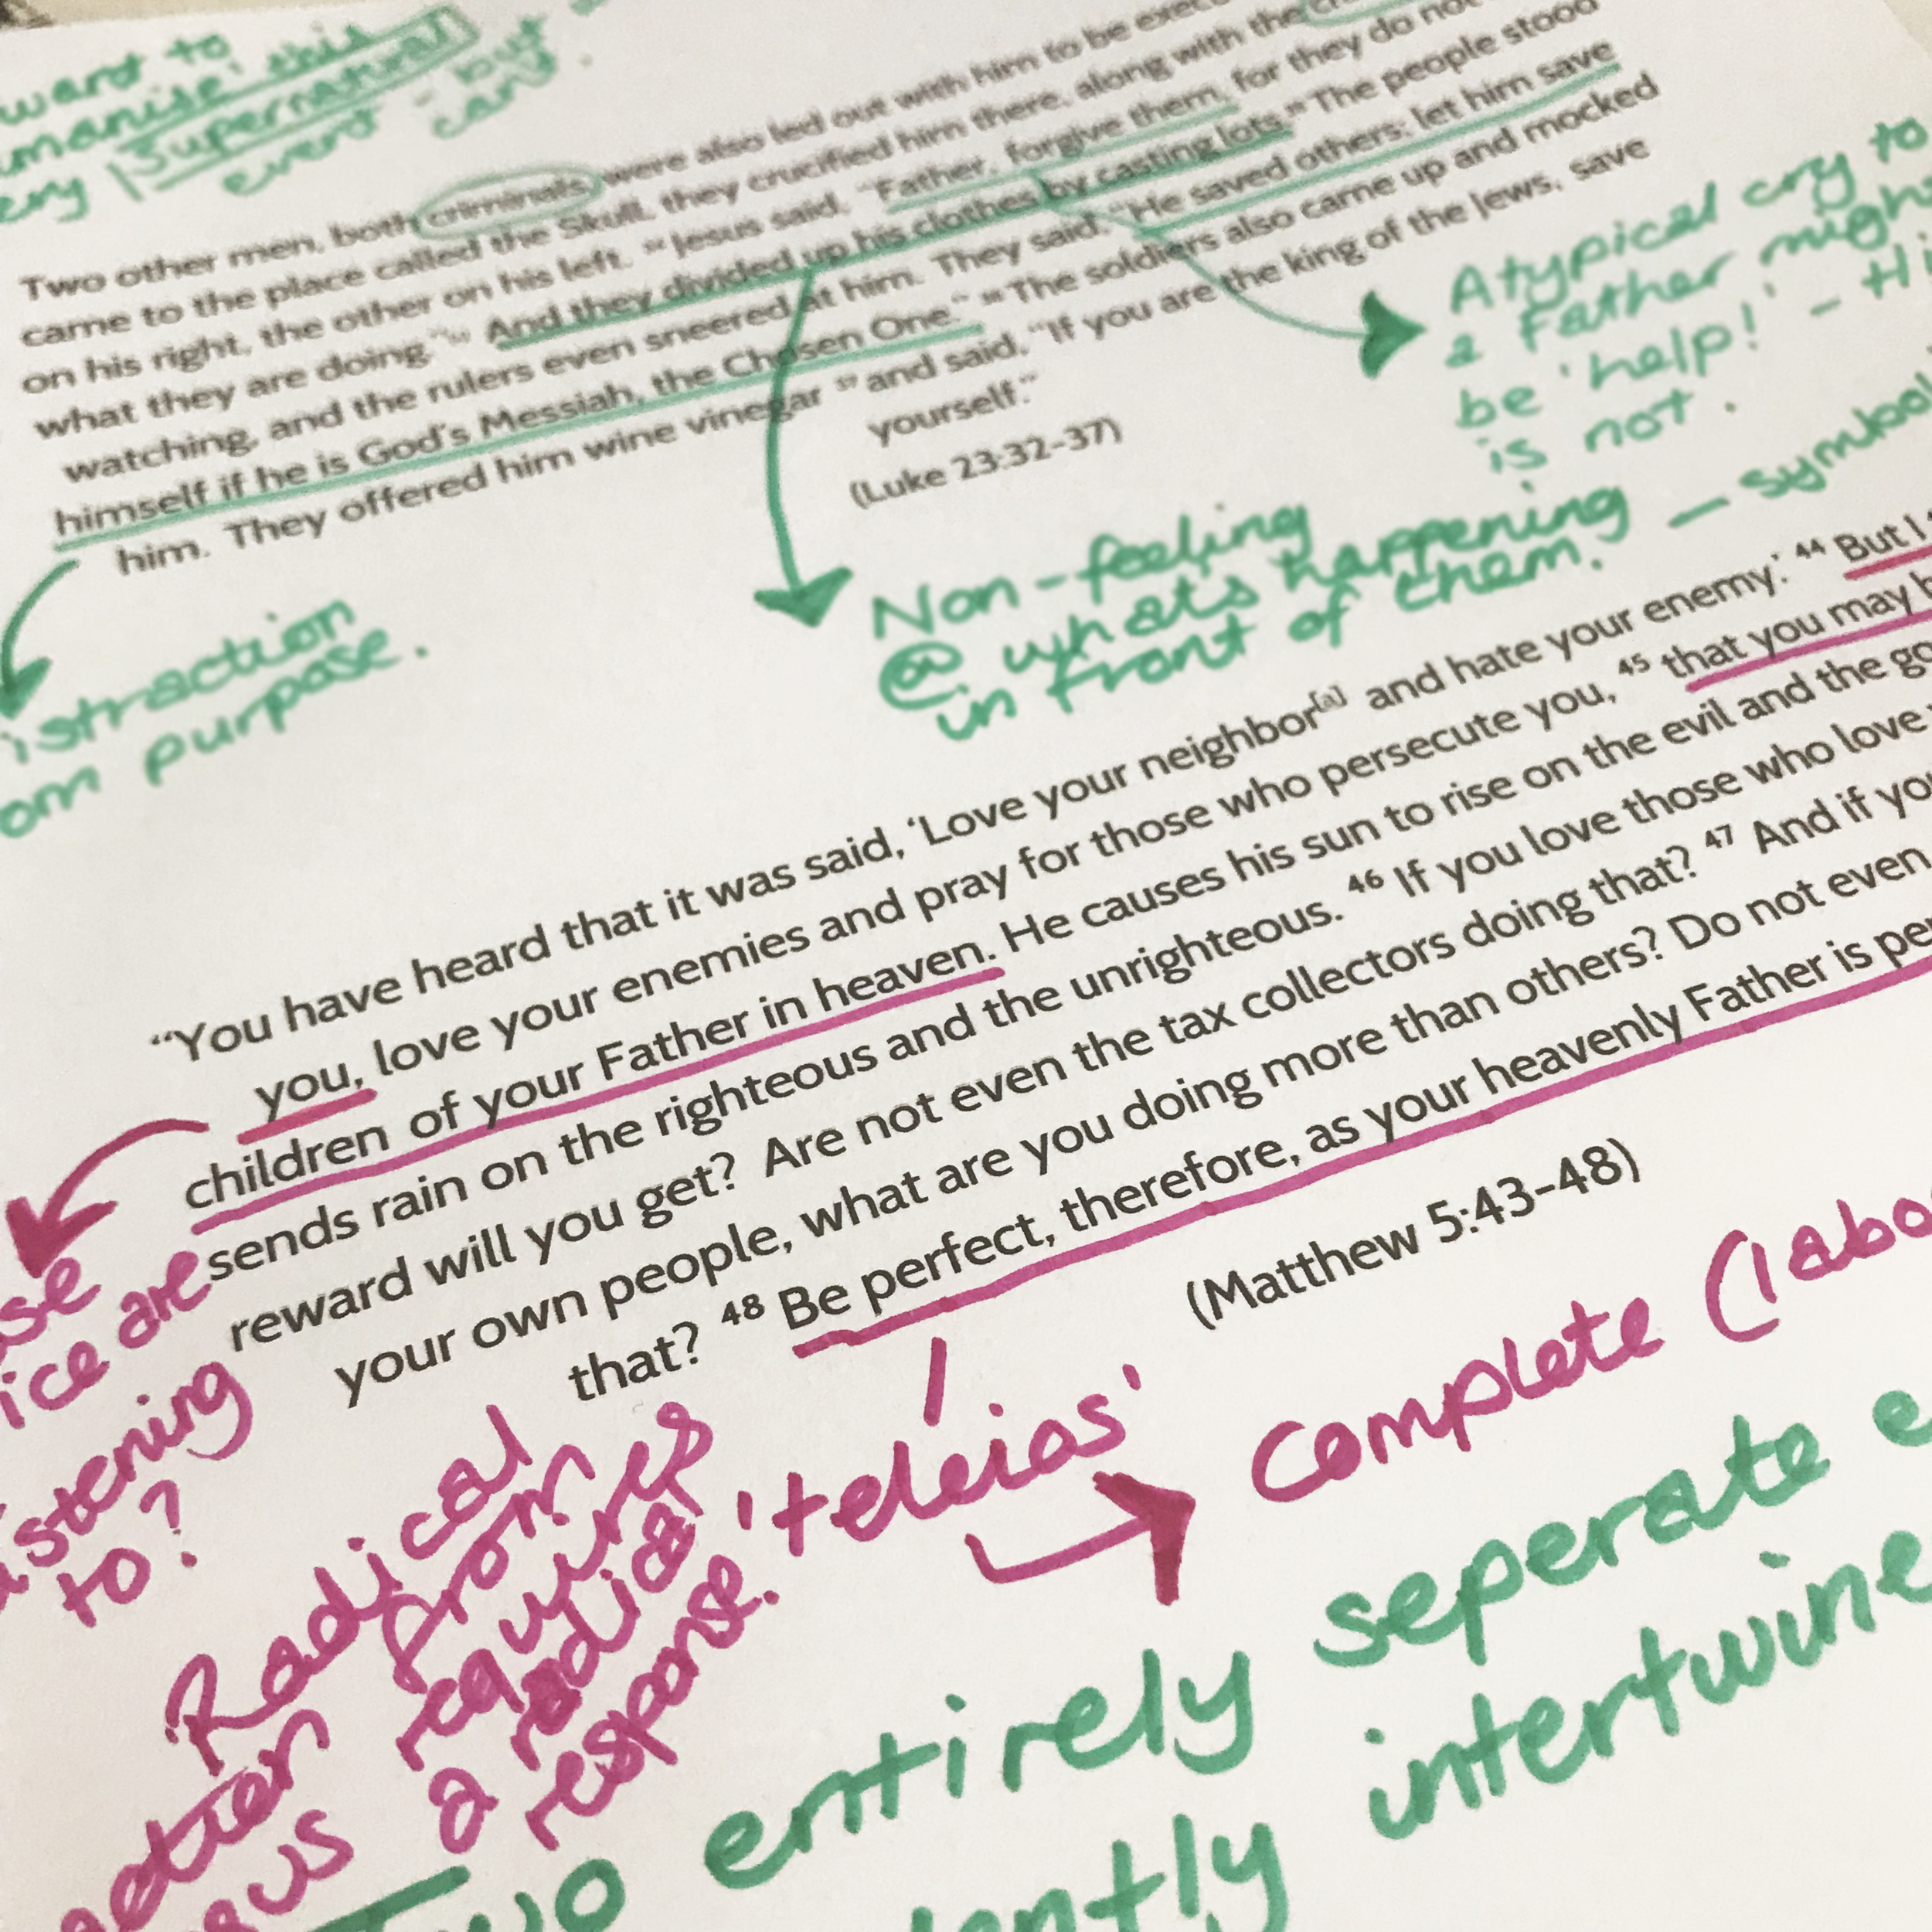 want to
this
supernatural
event - but
can't.
Two other men, both criminals, were also led out with him to be
came to the place called the Skull, they crucified him there, along with the
on his right, the other on his left. 34 Jesus said, "Father, forgive them, for they do not
what they are doing." And they divided up his clothes by casting lots. 35 The people stood
watching, and the rulers even sneered at him. They said, "He saved others; let him save
himself if he is God's Messiah, the Chosen One." 36 The soldiers also came up and mocked
him. They offered him wine vinegar 37 and said, "If you are the king of the Jews, save
yourself."
(Luke 23:32-37)
Atypical cry to
a Father might
be 'help!' -
is not.
Non-feeling
@ whats happening —
in front of them.
purpose.
"You have heard that it was said, 'Love your neighbor[a] and hate your enemy.' 44 But I
you, love your enemies and pray for those who persecute you, 45 that you may
children of your Father in heaven. He causes his sun to rise on the evil and the
sends rain on the righteous and the unrighteous. 46 If you love those who love
reward will you get? Are not even the tax collectors doing that? 47 And if
your own people, what are you doing more than others? Do not even
that? 48 Be perfect, therefore, as your heavenly Father is
(Matthew 5:43-48)
are
to?
Radical
requires
a radical
response.
'teleios'
Complete
Two entirely seperate